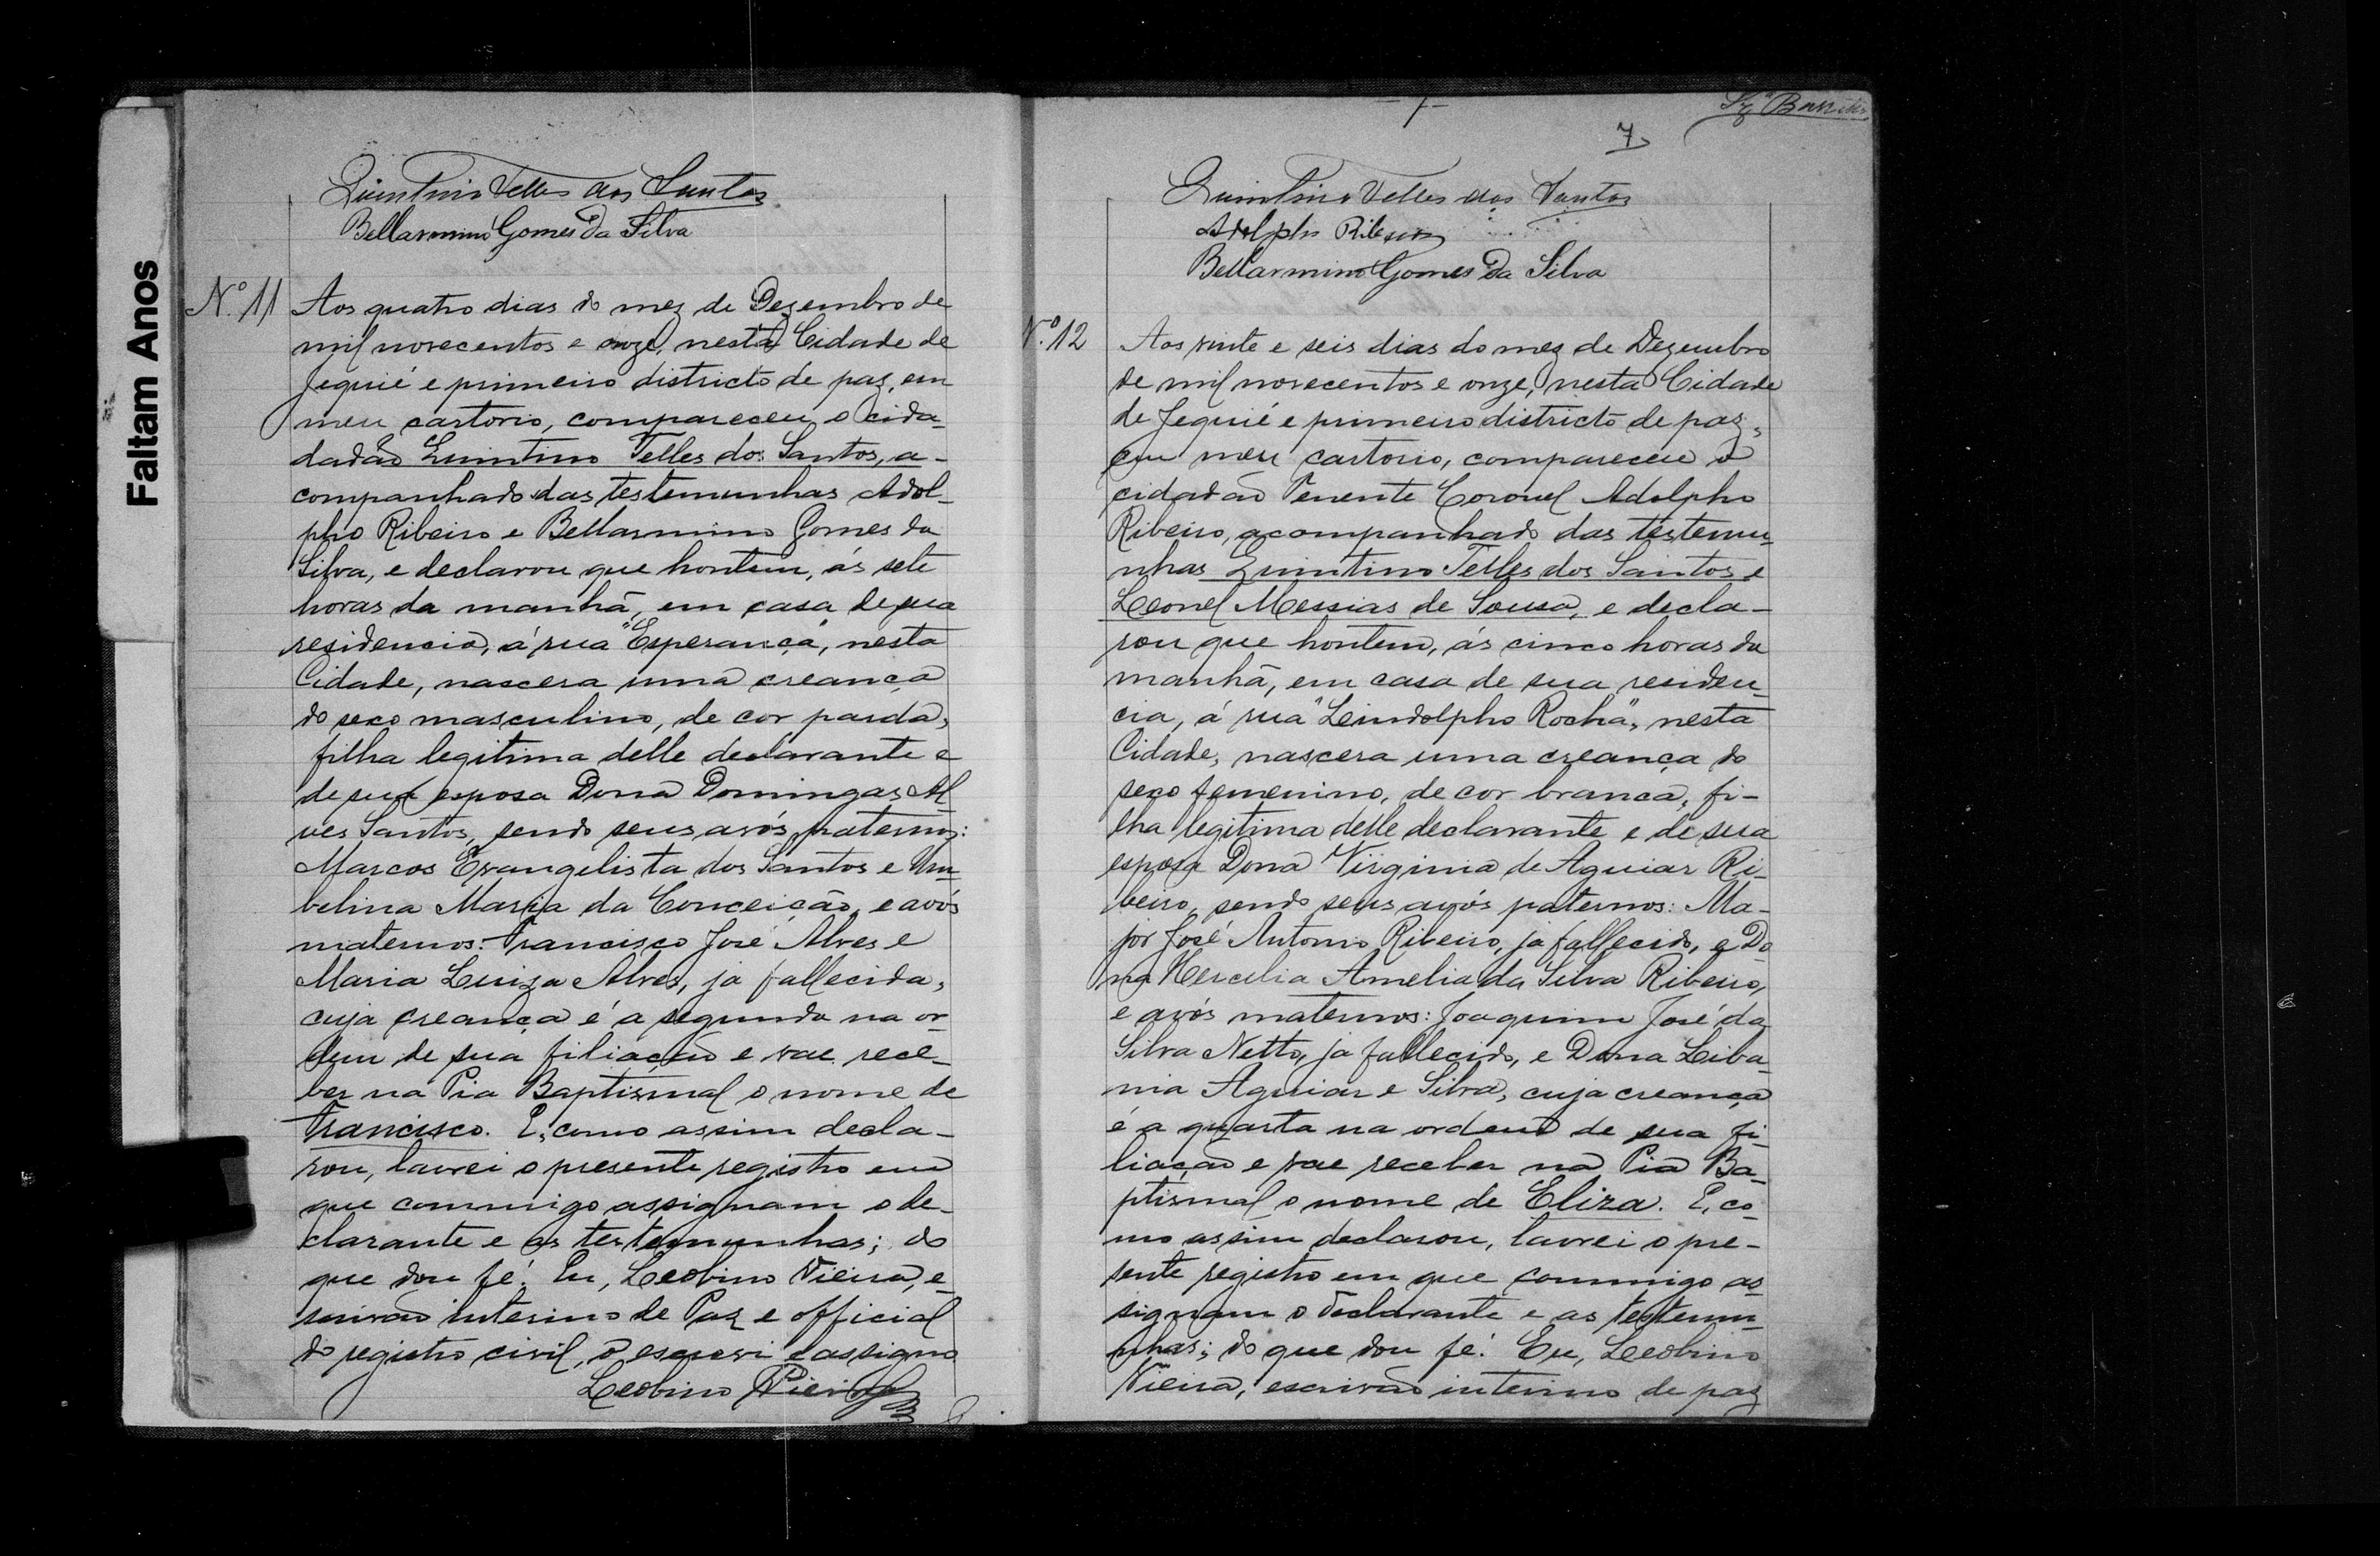 Faltam Anos
Quintino Telles dos Santos
Bellarmino Gomes da Silva
Nº 11 Aos quatro dias do mez de Dezembro de
mil novecentos e onze, nesta Cidade de
Jequié e primeiro districto de paz, em
meu cartorio, compareceu o cida-
dadão Quintino Telles dos Santos, a-
companhado das testemunhas Adol-
pho Ribeiro e Bellarmino Gomes da
Silva, e declarou que hontem, ás sete
horas da manhã, em casa de sua
residencia, á rua "Esperança", nesta
Cidade, nascera uma creança
do sexo masculino, de cor parda,
filha legitima delle declarante e
de sua esposa Dona Domingas Al-
ves Santos, sendo seus avós paternos:
Marcos Evangelista dos Santos e Um-
belina Maria da Conceição, e avós
maternos: Francisco José Alves e
Maria Luiza Alves, ja fallecida,
cuja creança é a segunda na or-
dem de sua filiação e vae rece-
ber na Pia Baptismal o nome de
Francisco. E, como assim decla-
rou, lavrei o presente registro em
que commigo assignam o de-
clarante e as testemunhas; do
que dou fé. Eu, Leobino Vieira, e-
scrivão interino de Paz e official
do registro civil, o escrevi e assigno
Leobino Vieira
7
Quintino Telles dos Santos
Adolpho Ribeiro
Bellarmino Gomes da Silva
Nº 12 Aos vinte e seis dias do mez de Dezembro
de mil novecentos e onze, nesta Cidade
de Jequié e primeiro districto de paz,
em meu cartorio, compareceu o
cidadão Tenente Coronel Adolpho
Ribeiro, acompanhado das testemu-
nhas Quintino Telles dos Santos e
Leonel Messias de Sousa, e decla-
rou que hontem, ás cinco horas da
manhã, em casa de sua residen-
cia, á rua "Leindolpho Rocha", nesta
Cidade, nascera uma creança do
sexo femenino, de cor branca, fi-
lha legitima delle declarante e de sua
esposa Dona Virginia de Aguiar Ri-
beiro, sendo seus avós paternos: Ma-
jor José Antonio Ribeiro, ja fallecido, e Do-
na Hercilia Amelia da Silva Ribeiro,
e avós maternos: Joaquim José da
Silva Netto, ja fallecido, e Dona Liba-
nia Aguiar e Silva, cuja creança
é a quarta na ordem de sua fi-
liação e vae receber na Pia Ba-
ptismal o nome de Eliza. E, co-
mo assim declarou, lavrei o pre-
sente registro em que commigo as-
signam o declarante e as testemu-
nhas; do que dou fé. Eu, Leobino
Vieira, escrivão interino de paz